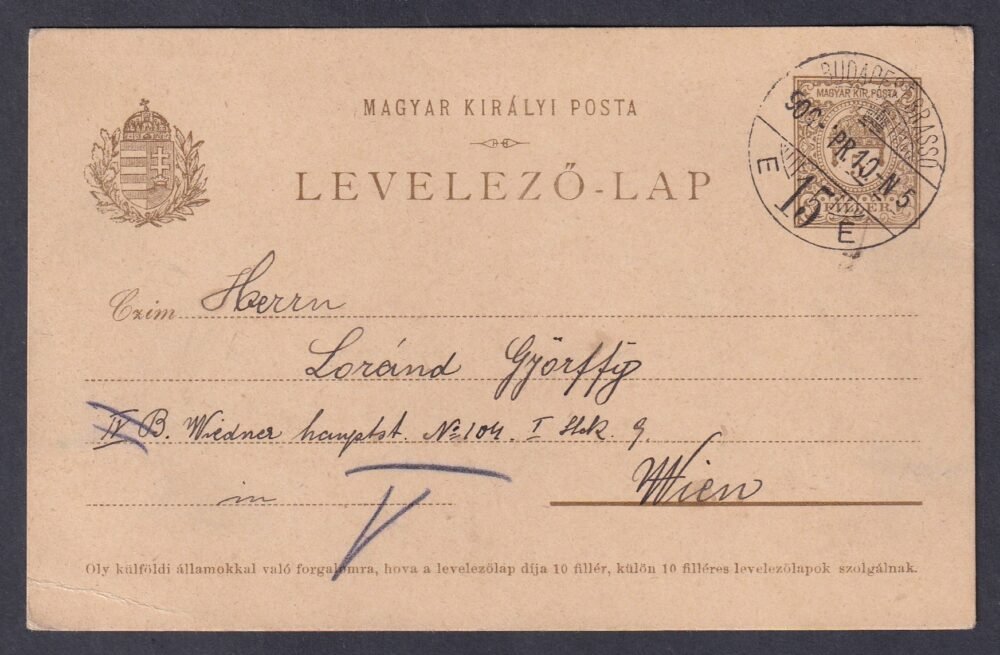 MAGYAR KIRÁLYI POSTA
LEVELEZŐ-LAP
MAGYAR KIR. POSTA
FILLÉR
BUDAPEST BRASSÓ
900 ÁPR. 10 - N. 5
E 15 E
Czim Herrn
Loránd Györffÿ
IV B. Wiedner hauptst. No 104. I Stck 9.
in Wien
V
Oly külföldi államokkal való forgalomra, hova a levelezőlap díja 10 fillér, külön 10 filléres levelezőlapok szolgálnak.